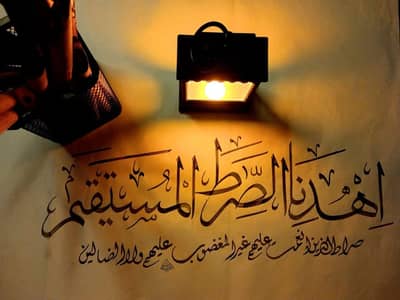 اِهْدِنَا الصِّرَاطَ الْمُسْتَقِيْمَ
صراط الذين انعمت عليهم غير المغضوب عليهم ولا الضالين